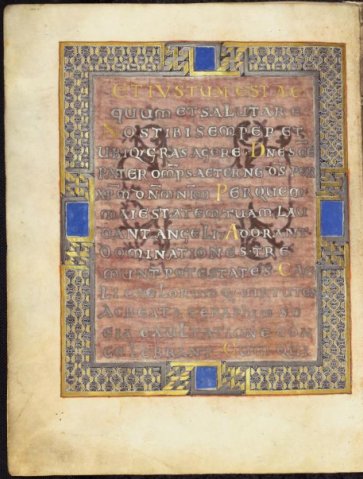 ET IUSTUM EST AE
QUUM ET SALUTARE
NOS TIBI SEMPER ET
UBIQ· GRAS AGERE· DNE SCE
PATER OMPS AETERNE DS· PER
XPM DNM NRM PER QUEM
MAIESTATEM TUAM LAU
DANT ANGELI· ADORANT
DOMINATIONES· TRE
MUNT POTESTATES· CAE
LI CAELORUMQ· UIRTUTES
AC BEATA SERAPHIN SO
CIA EXULTATIONE CON